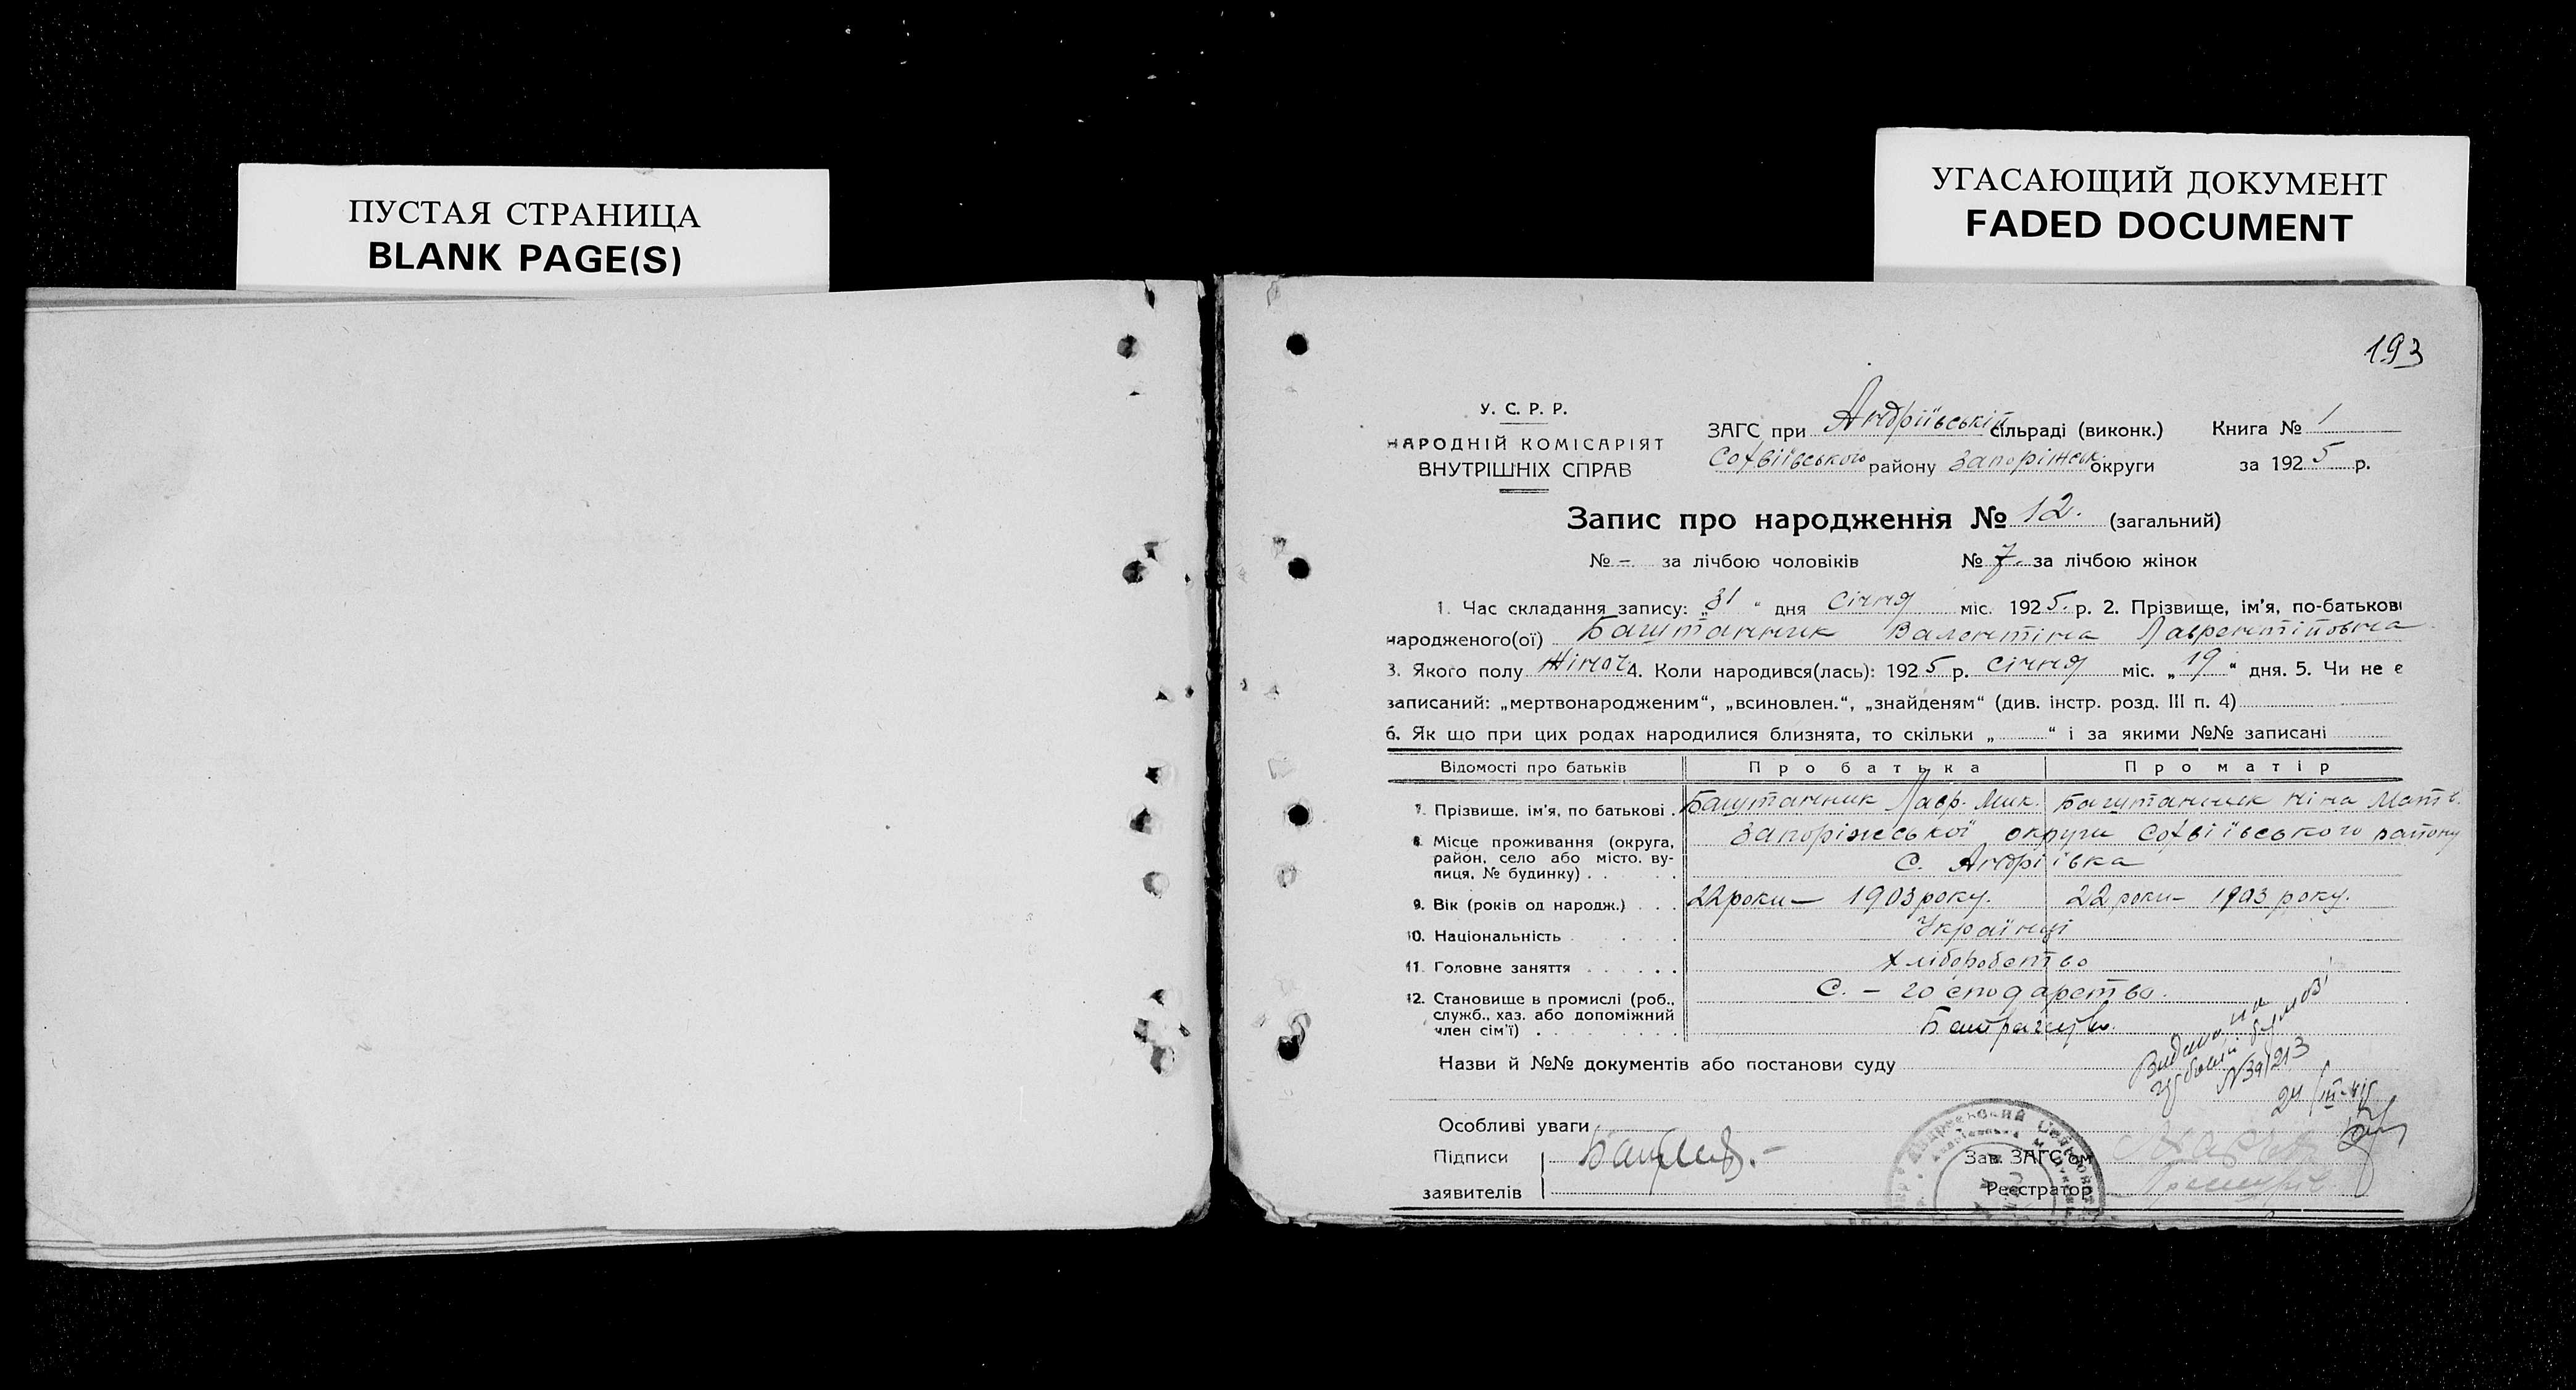 ПУСТАЯ СТРАНИЦА
BLANK PAGE(S)
УГАСАЮЩИЙ ДОКУМЕНТ
FADED DOCUMENT
193
У. С. Р. Р.
НАРОДНІЙ КОМІСАРІЯТ
ВНУТРІШНІХ СПРАВ
ЗАГС при Андріївській сільраді (виконк.) Книга № 1
Софвіївського району Запоріжськ. округи за 1925 р.
Запис про народження № 12. (загальний)
№ – за лічбою чоловіків № 7. за лічбою жінок
1. Час складання запису: „31“ дня Січня міс. 1925. р. 2. Прізвище, ім'я, по-батькові
народженого(ої) Баштанник Валентіна Лаврентіївна
3. Якого полу Жіноч 4. Коли народився(лась): 1925 р. Січня міс. „19“ дня. 5. Чи не є
записаний: „мертвонародженим“, „всиновлен.“, „знайденям“ (див. інстр. розд. III п. 4)
6. Як що при цих родах народилися близнята, то скільки „ “ і за якими №№ записані
Відомості про батьків Про батька Про матір
7. Прізвище, ім'я, по батькові . Баштанник Лавр. Мик. Баштанник Ніна Матв.
8. Місце проживання (округа, район, село або місто, вулиця, № будинку) . . Запоріжської округи Софвіївського району
С. Андріївка
9. Вік (років од народж.) . . . 22 роки – 1903 року. 22 роки – 1903 року.
10. Національність . . . . Українці
11. Головне заняття . . . . . . Хліборобство
12. Становище в промислі (роб., служб., хаз. або допоміжний член сім'ї) . . . С. – господарство.
Назви й №№ документів або постанови суду
№ 391213
Особливі уваги
Підписи
заявителів
Зав. ЗАГС'ом
Реєстратор